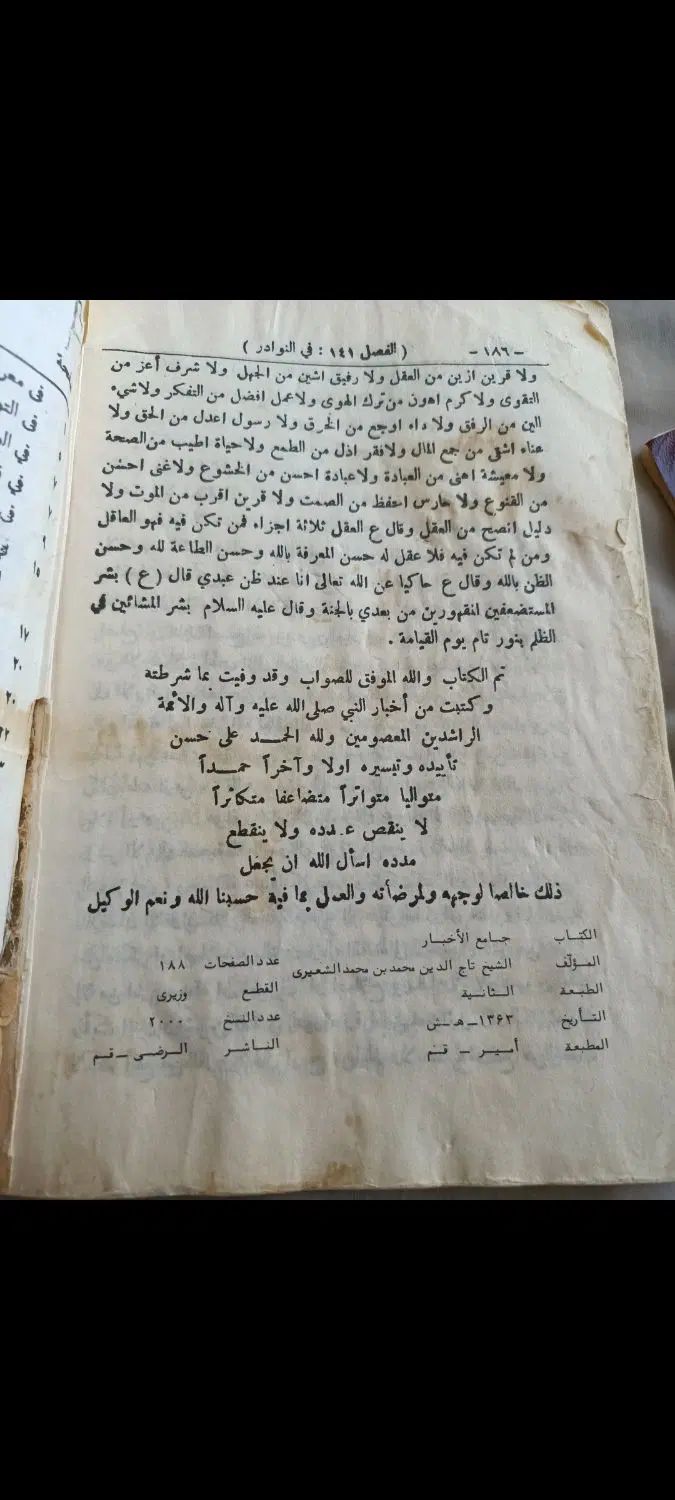 - ١٨٦ -
( الفصل ١٤١ : في النوادر )
ولا قرين ازين من العقل ولا رفيق اشين من الجهل ولا شرف أعز من
التقوى ولا كرم اهون من ترك الهوى ولا عمل افضل من التفكر ولا شيء
الين من الرفق ولا داء اوجع من الخرق ولا رسول اعدل من الحق ولا
عناء اشق من جمع المال ولا فقر اذل من الطمع ولا حياة اطيب من الصحة
ولا معيشة اهنى من العبادة ولا عبادة احسن من الخشوع ولا غنى احسن
من القنوع ولا حارس احفظ من الصمت ولا قرين اقرب من الموت ولا
دليل انصح من العقل وقال ع العقل ثلاثة اجزاء فمن تكن فيه فهو العاقل
ومن لم تكن فيه فلا عقل له حسن المعرفة بالله وحسن الطاعة لله وحسن
الظن بالله وقال ع حاكيا عن الله تعالى انا عند ظن عبدي قال ( ع ) بشر
المستضعفين المقهورين من بعدي بالجنة وقال عليه السلام بشر المشائين في
الظلم بنور تام يوم القيامة .
تم الكتاب والله الموفق للصواب وقد وفيت بما شرطته
وكتبت من أخبار النبي صلى الله عليه وآله والأئمة
الراشدين المعصومين ولله الحمد على حسن
تأييده وتيسيره اولا وآخراً حمداً
متواليا متواتراً متضاعفا متكاثراً
لا ينقص عدده ولا ينقطع
مدده اسأل الله ان يجعل
ذلك خالصا لوجهه ولمرضأته والعمل بما فيه حسبنا الله ونعم الوكيل
الكتاب جامع الأخبار
المؤلف الشيخ تاج الدين محمد بن محمد الشعيري عدد الصفحات ١٨٨
الطبعة الثانية القطع وزيرى
التأريخ ١٣۶٣ - ه - ش عدد النسخ ٢٠٠٠
المطبعة أمير - قم الناشر الرضى - قم
١٥
١٧
٢٠
٢٠